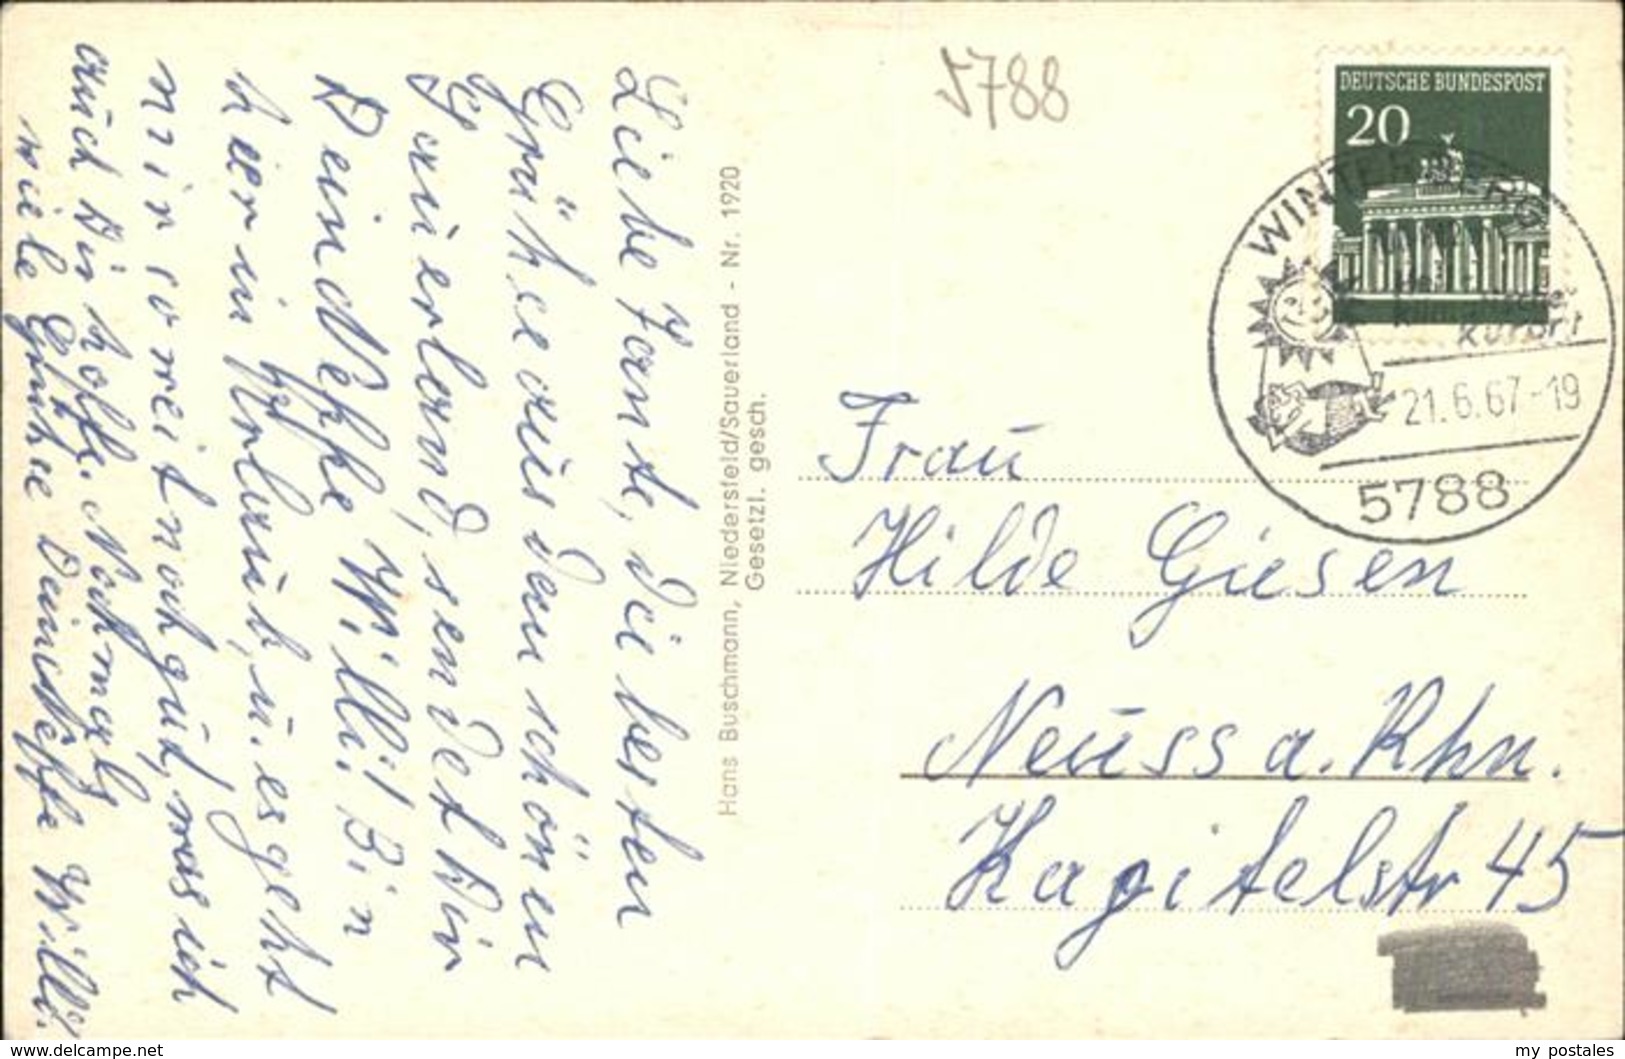 Liebe Tante, die besten
Grüße aus dem schönen
Sauerland, sendet Dir
Dein Neffe Willi! Bin
hier in Urlaub, u. es geht
mir soweit noch gut, was ich
auch Dir hoffe. Nochmals
viele Grüße Dein Neffe Willi!
Hans Buschmann, Niedersfeld/Sauerland - Nr. 1920
Gesetzl. gesch.
5788
DEUTSCHE BUNDESPOST
20
WINTERBERG
kurort
21.6.67-19
5788
Frau
Hilde Giesen
Neuss a. Rhn.
Kapitelstr 45
www.delcampe.net
my_postales